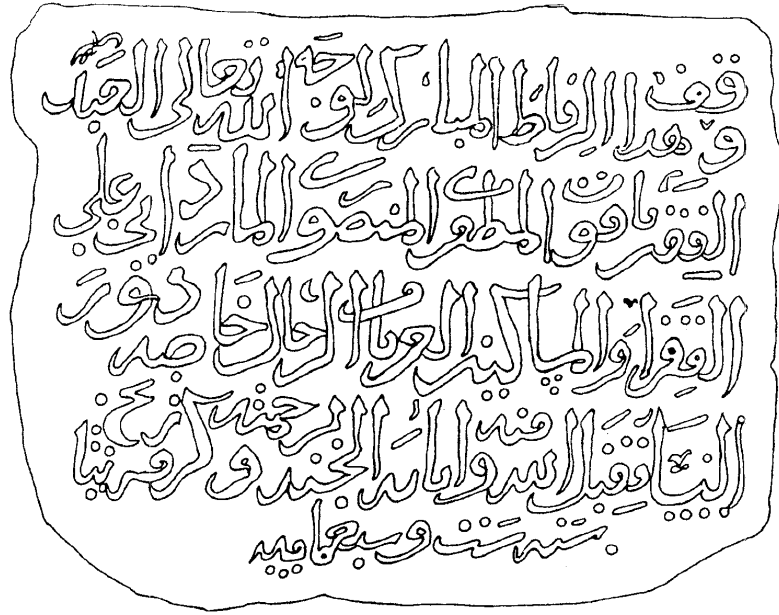 وقف هدا الرفاط المبارك لوجه الله تعالى
الفقير ياقوت المظفرى المنصورى الماردانى على
الفقرا والمساكين الغربا الرجال الخاصه دون
النسا تقبل الله منه واثابه الجنه وكرمه
سنة ست وسبعمايه